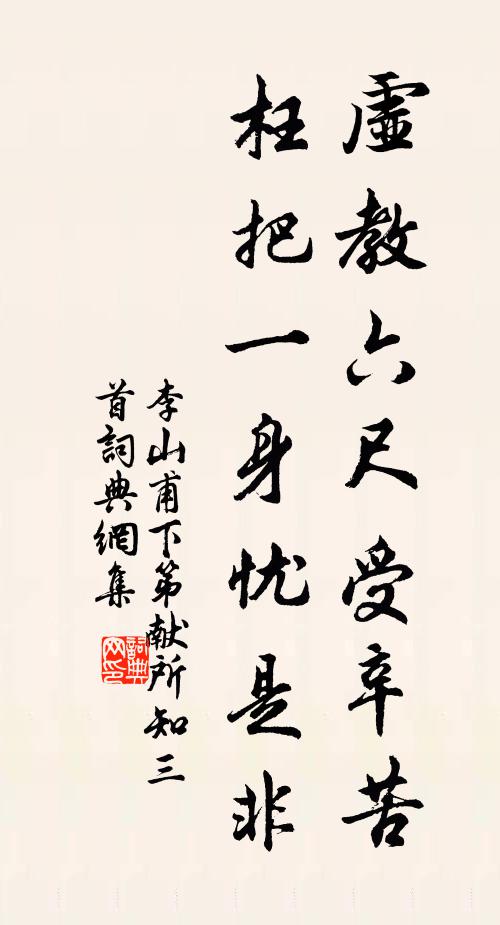 虛教六尺受辛苦
枉把一身忧是非
李山甫下第献所知三
首詞典網集
詞典
网印